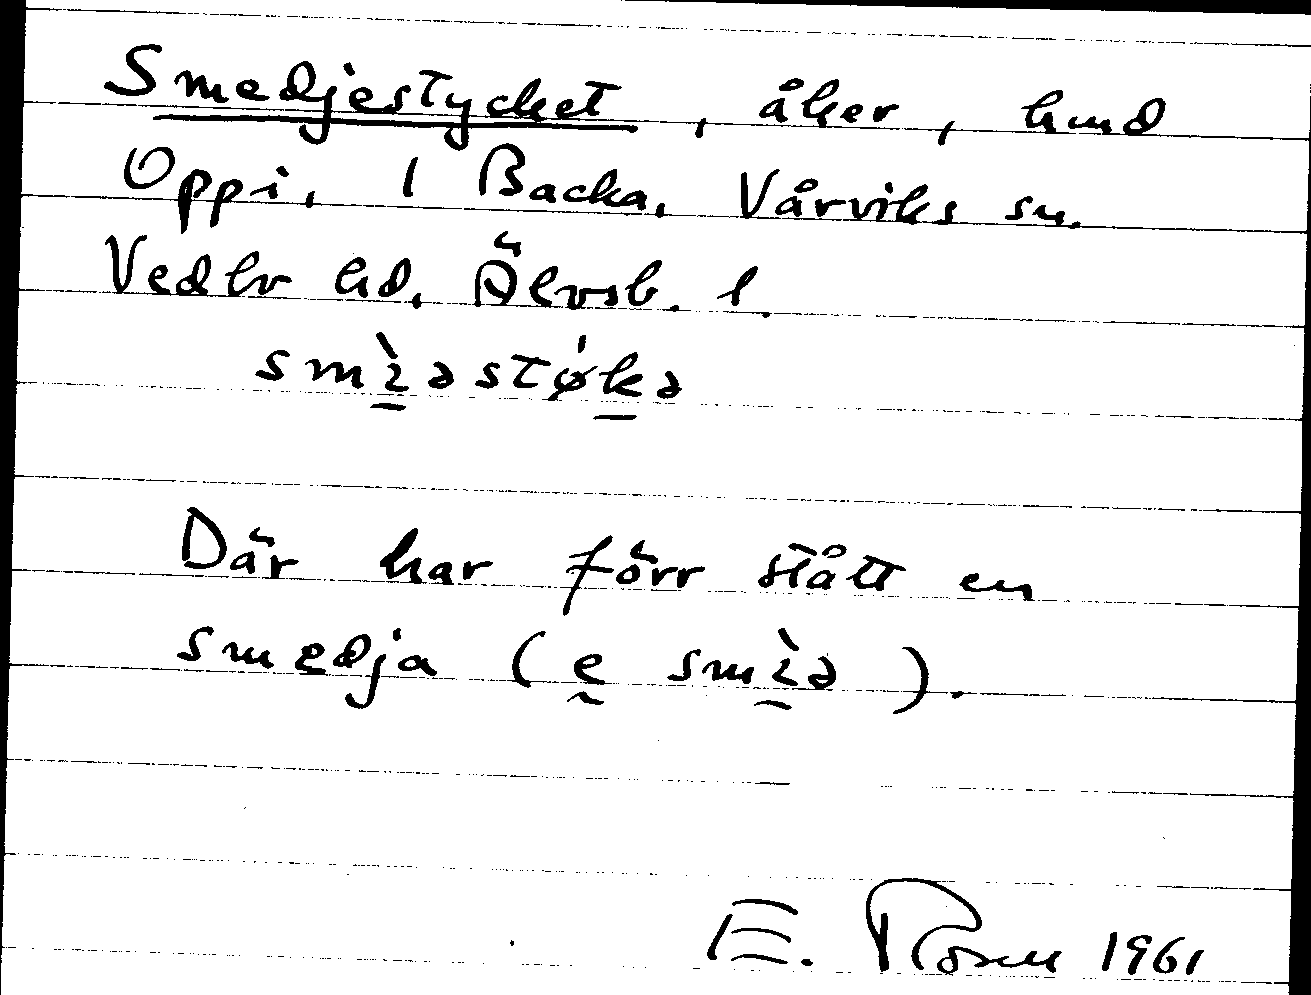 Smedjestycket, åker, hmd
Oppi, 1 Backa, Vårviks sn.
Vedbo hd, Älvsb. l.
smìəstǿkə
Där har förr stått en
smedja (e smìə).
E. Rosen 1961